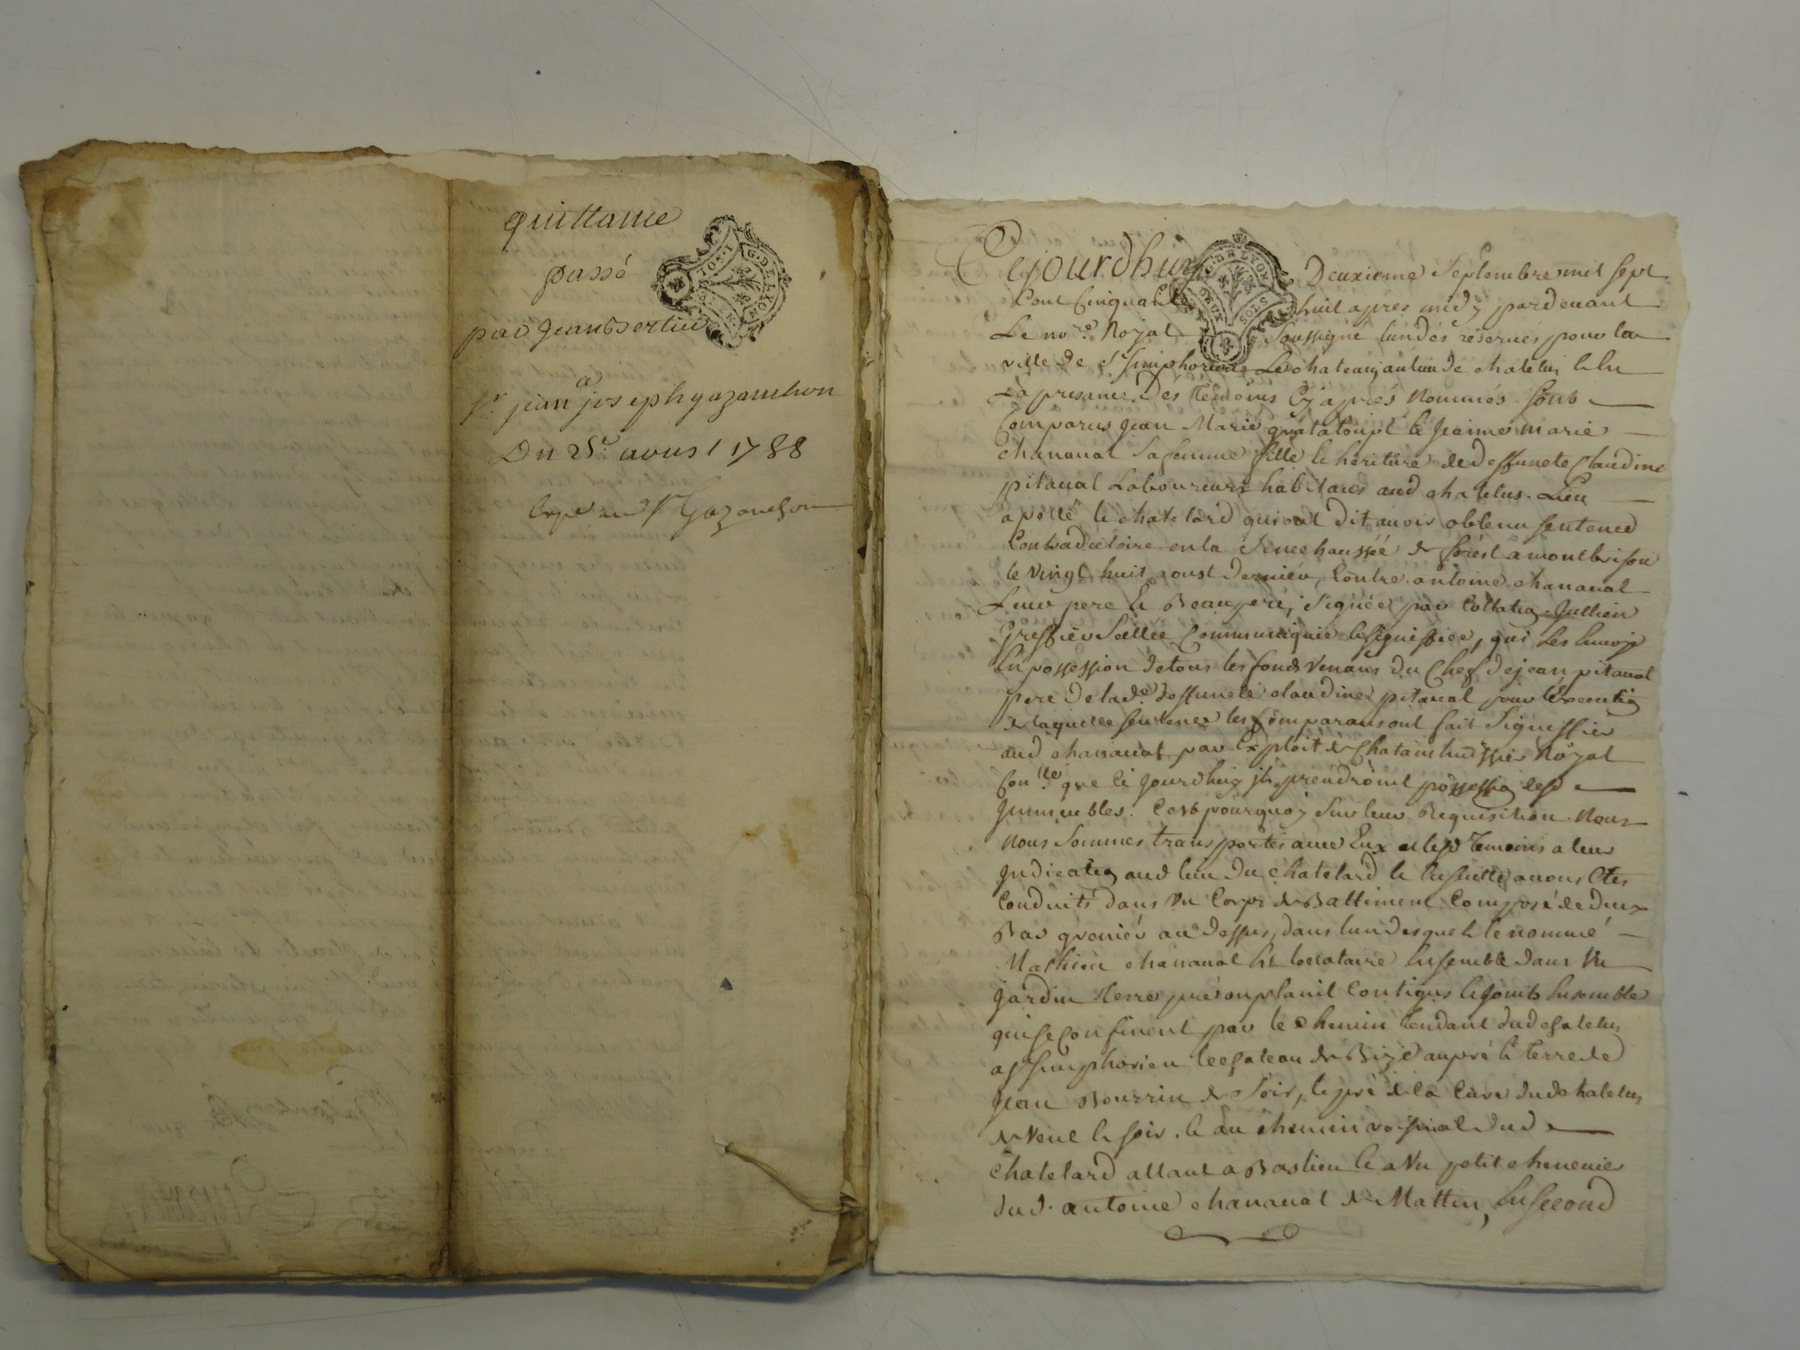 quittance
passé
par Jean
a
Sr. jean joseph gazanchon
Du 25e. avust 1788
Sr Gazanchon
G. DE LYON
Cejourdhuy Deuxieme Septembre mil sept
Cent Cinquante huit apres midy pardevant
Le nore. Royal Soussigné lun des reservés pour la
ville de St. simphorien Le chateau de chatelus
La presance Des temoins Cy apres nommés sont
Comparus jean Marie le jeanne marie
chanaval sa femme fille le heritiere de deffuncte Claudine
pitaval Laboureurs habitans aud chatelus. Lieu
apellé le chatelard qui ont dit avoir obtenu sentence
Contradictoire en la Senechaussée de forest a montbrison
le vingt huit aoust dernier, Contre antoine chanaval
Leur pere Beaupere, signée par Collatiõ jullien
Greffier Scellée Communiquée signiffiée, qui les Envoye
En possession de tous les fonds venans du Chef de jean pitaval
pere de lade. deffuncte claudine pitaval pour Execution
de laquelle sentence les Comparans ont fait signiffier
aud chanaval par Exploit de Chatain huissier Royal
que ce jourdhuy ils prendroint possession desd
jmmeubles. C'est pourquoy sur leur Requisition Nous
nous sommes transportés avec Eux et lesd temoins a leur
jndication aud lieu du chatelard avons Etes
Conduits dans un Corps de Battiment Composé de deux
Bas grenier au dessus, dans lun desquels le nommé
Mathieu chanaval locataire Ensemble dans un
jardin terre pré Contigus joints Ensemble
qui se Confinent par le chemin tendant dud chatelus
a st simphorien le chateau de Bize au pré terre de
jean Bourrin de Soir, le pré de la Cure dud chatelus
de vent le soir. au chemin dud
Chatelard allant a un petit
dud. antoine chanaval de Mattin, En second